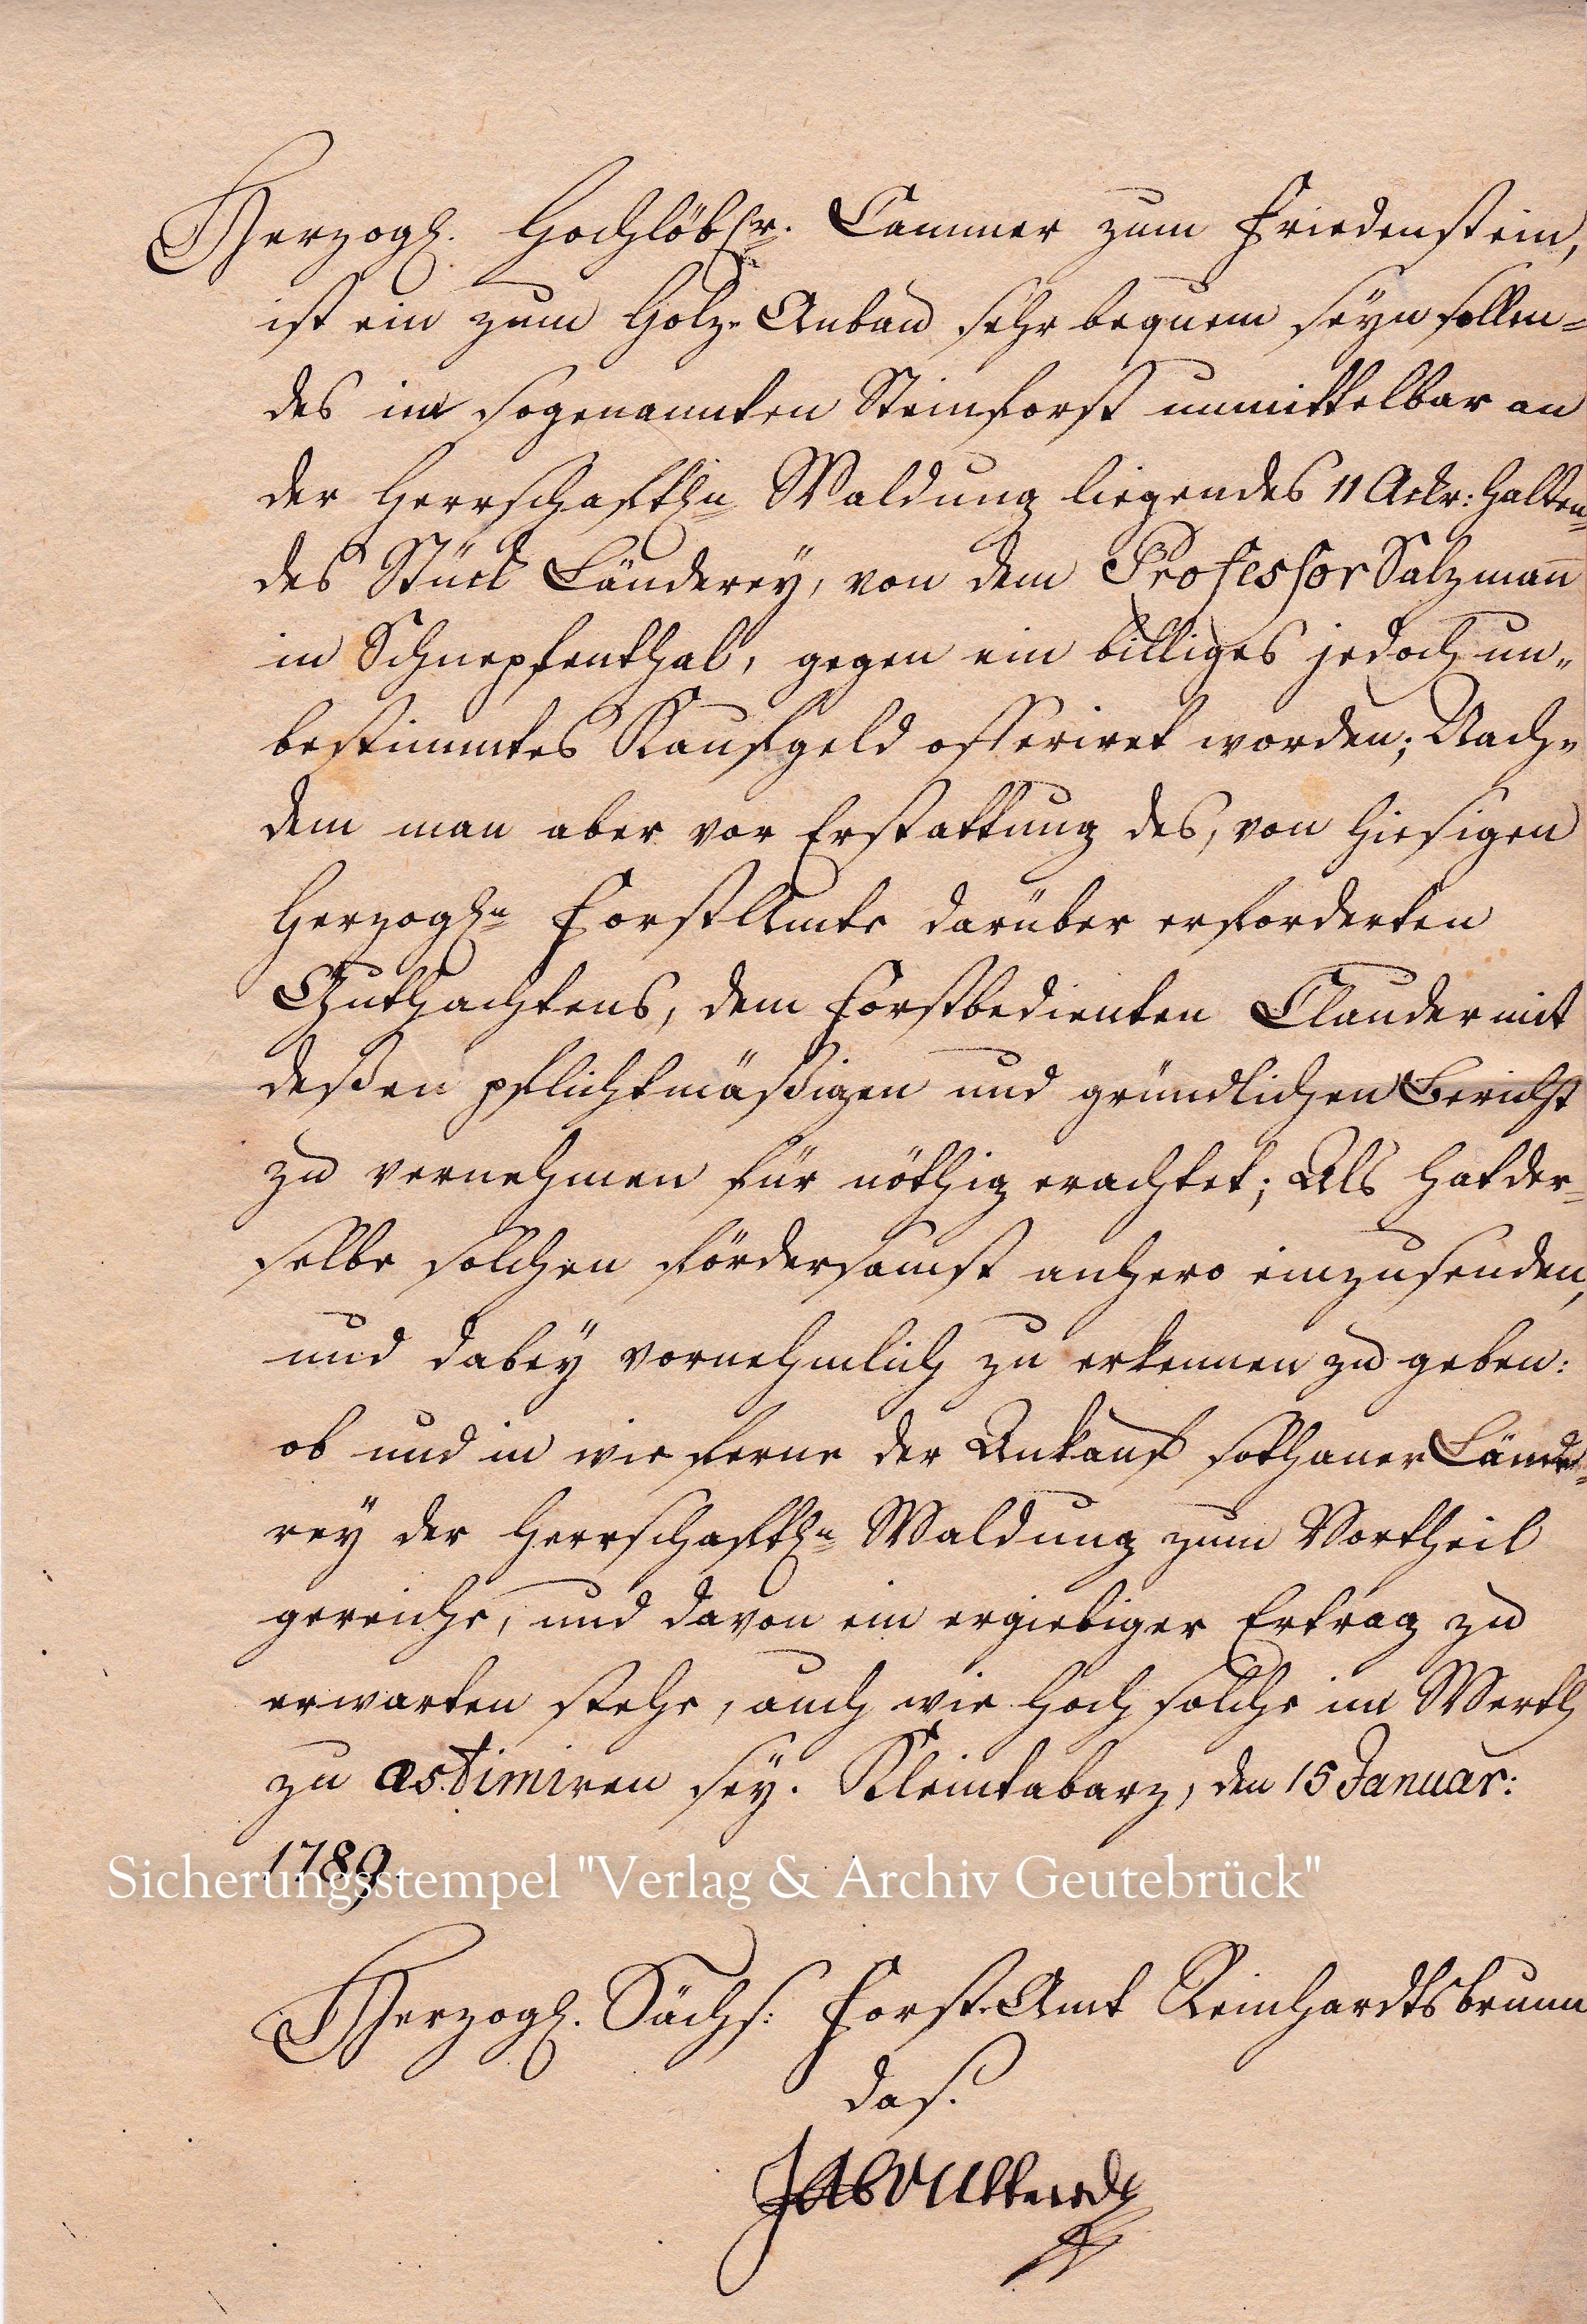 Herzogl. Hochlöbl.r Cammer zum Friedenstein,
ist ein zum Holz-Anbau sehr bequem seyn sollen-
des im sogenannten Steinforst unmittelbar an
der Herrschaftln Waldung liegendes 11 Ackr: halten-
des Stück Länderey, von dem Professor Salzmann̄
in Schnepfenthal, gegen ein billiges jedoch un-
bestimmtes Kaufgeld offeriret worden; Nach-
dem man aber vor Erstattung des, von hiesigen
Herzogln ForstAmte darüber erforderten
Guthachtens, dem Forstbedienten Clauder mit
deßen pflichtmäßigen und gründlichen Bericht
zu vernehmen für nöthig erachtet; Als hat der-
selbe solchen fördersamst anhero einzusenden,
und dabey vornehmlich zu erkennen zu geben:
ob und in wie ferne der Ankauf sothaner Lände-
rey der Herrschaftln Waldung zum Vortheil
gereiche, und davon ein ergiebiger Ertrag zu
erwarten stehe, auch wie hoch solche im Werth
zu æstimiren sey. Kleintabarz, den 15 Januar:
1789.
Sicherungsstempel "Verlag & Archiv Geutebrück"
Herzogl. Sächs: Forst-Amt Reinhardtsbrunn
das.